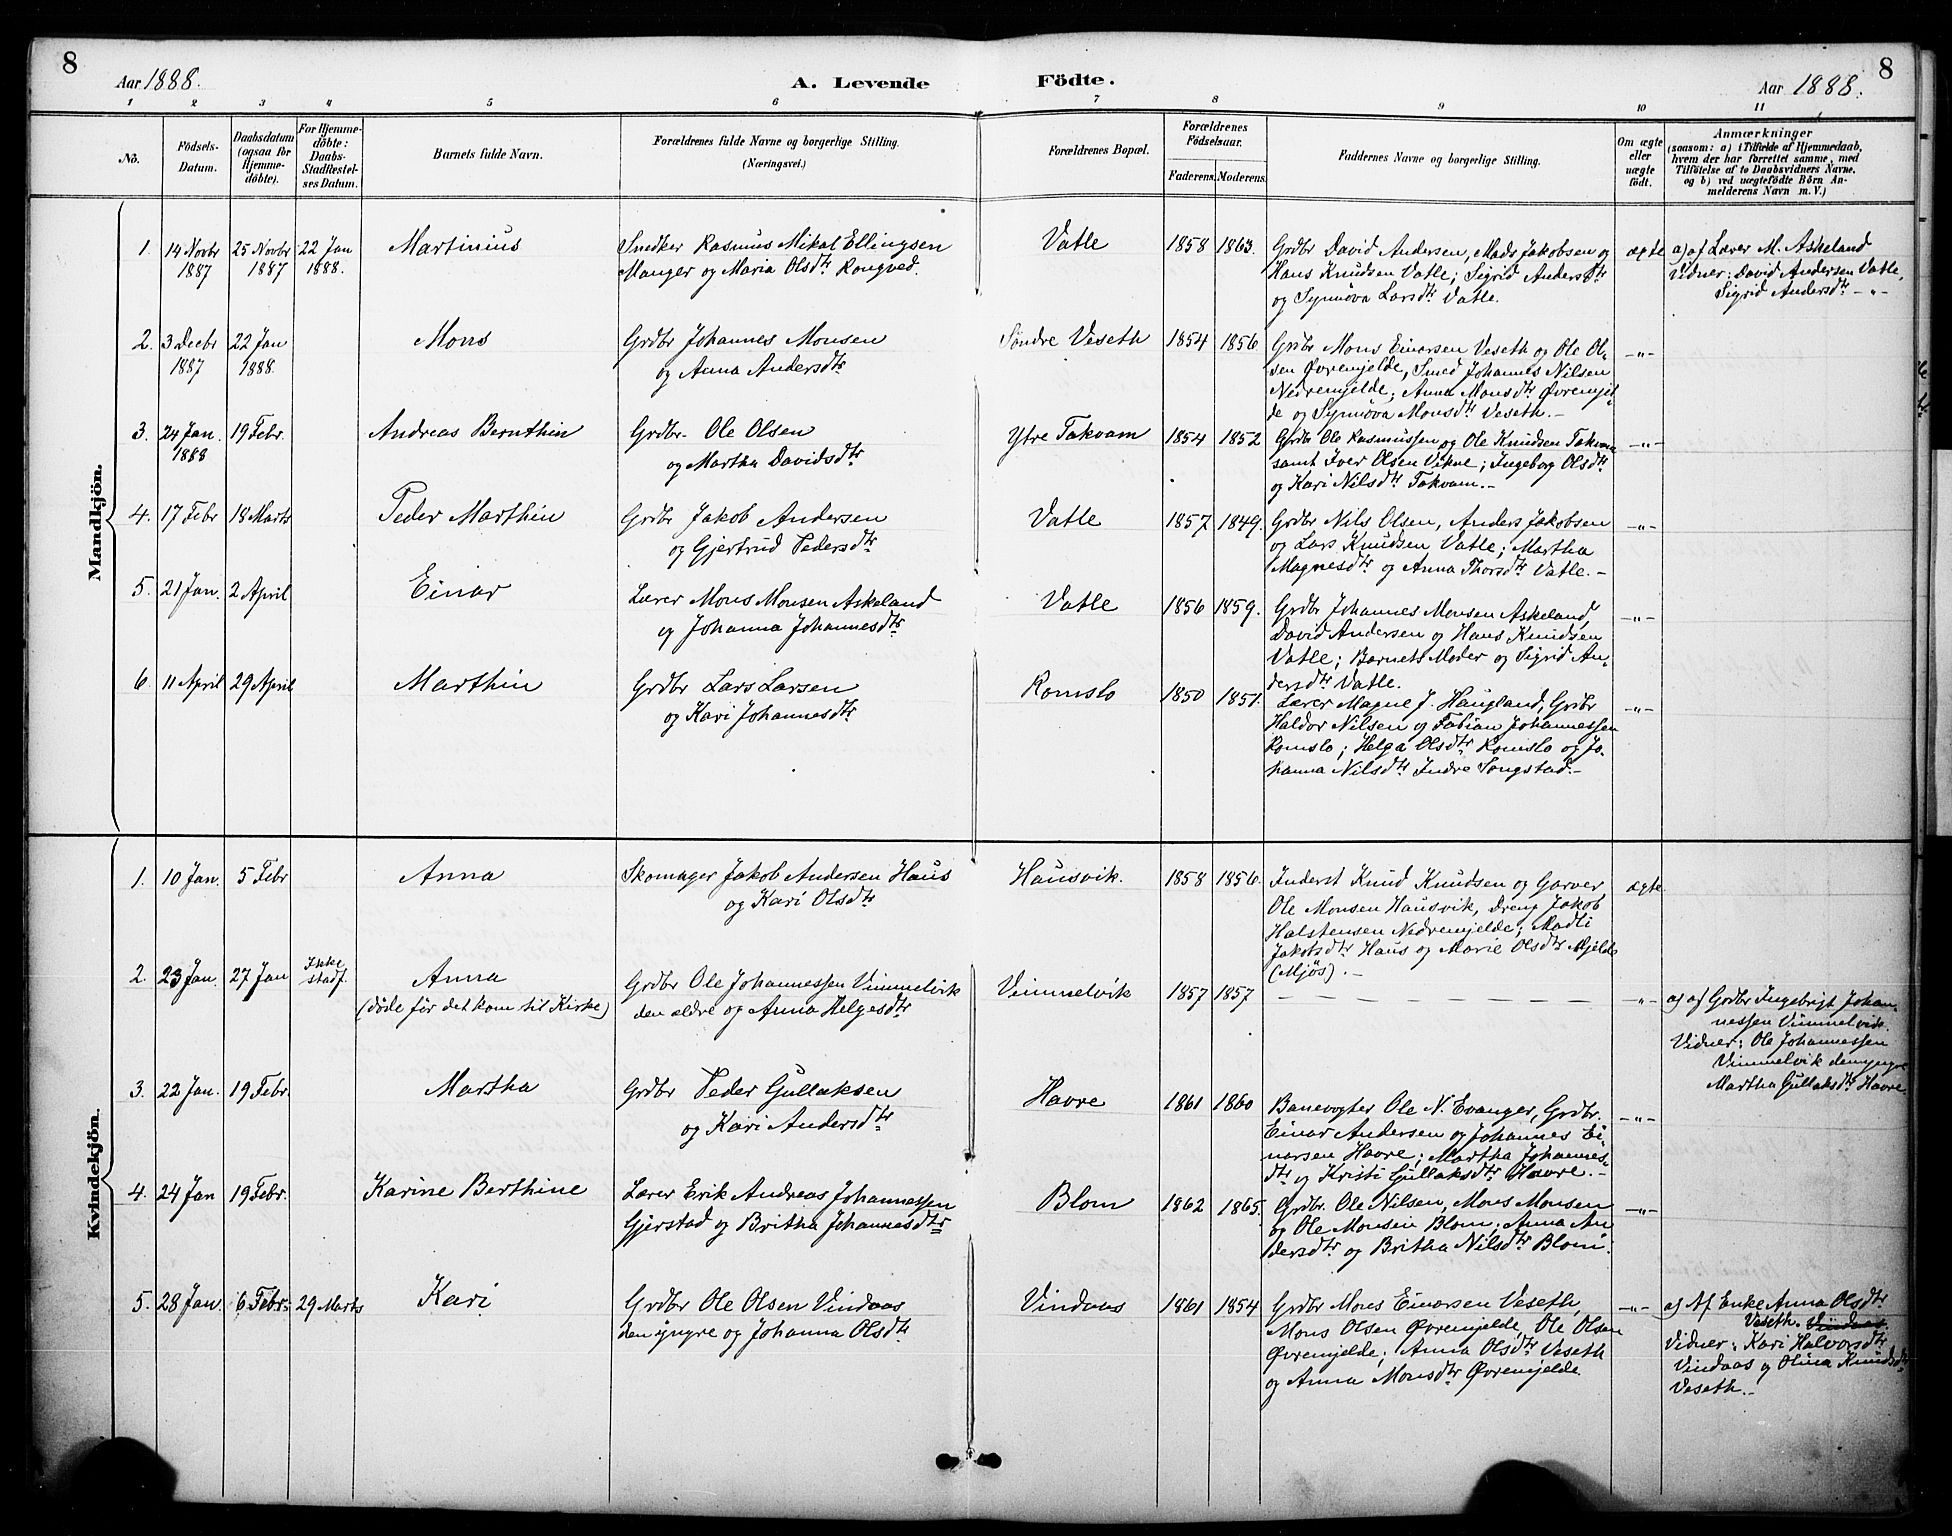 8
Aar 1888.
A. Levende Födte.
Aar 1888.
8
1 2 3 4 5 6 7 8 9 10 11
No.
Födsels-
Datum.
Daabsdatum
(ogsaa for
Hjemme-
döbte).
For Hjemme-
döbte:
Daabs-
Stadfæstel-
ses Datum.
Barnets fulde Navn.
Forældrenes fulde Navne og borgerlige Stilling.
(Næringsvei.)
Forældrenes Bopæl.
Forældrenes
Födselsaar.
Faderens. Moderens.
Faddernes Navne og borgerlige Stilling.
Om ægte
eller
uægte
födt.
Anmærkninger
(saasom: a) i Tilfælde af Hjemmedaab,
hvem der har forrettet samme, med
Tilföielse af to Daabsvidners Navne,
og b) ved uægtefödte Börn An-
melderens Navn m. V.)
Mandkjön.
1. 14 Novbr 1887
25 Novbr 1887
22 Jan 1888.
Martinius
Snedker Rasmus Mikal Ellingsen
Manger og Maria Olsdtr Rongved.
Vatle
1858 1863.
Grdbr David Andersen, Mads Jakobsen og
Hans Knudsen Vatle; Sigrid Andersdtr
og Synnøva Larsdtr Vatle.
ægte
a) af Lærer M. Askeland
Vidner: David Andersen Vatle,
Sigrid Andersdtr — „ —
2. 3 Decbr 1887
22 Jan 1888.
Mons
Grdbr Johannes Monsen
og Anna Andersdtr
Søndre Veseth
1854 1856.
Grdbr Mons Einarsen Veseth og Ole Ol-
sen Øvremjelde, Smed Johannes Nilsen
Nedremjelde; Anna Monsdtr Øvremjel-
de og Synnøva Monsdtr Veseth. —
— „ —
3. 24 Jan. 1888
19 Febr.
Andreas Bernthin
Grdbr. Ole Olsen
og Martha Davidsdtr
Ytre Takvam
1854 1852
Grdbr Ole Rasmussen og Ole Knudsen Takvam
samt Iver Olsen Vikne; Ingeborg Olsdtr
og Kari Nilsdtr Takvam. —
— „ —
4. 17 Febr
18 Marts
Peder Marthin
Grdbr Jakob Andersen
og Gjertrud Pedersdtr
Vatle
1857 1849.
Grdbr Nils Olsen, Anders Jakobsen
og Lars Knudsen Vatle; Martha
Magnesdtr og Anna Thorsdtr Vatle. —
— „ —
5. 21 Jan.
2 April
Einar
Lærer Mons Monsen Askeland
og Johanna Johannesdtr
Vatle
1856 1859.
Grdbr Johannes Monsen Askeland,
David Andersen og Hans Knudsen
Vatle; Barnets Moder og Sigrid An-
dersdtr Vatle.
— „ —
6. 11 April
29 April
Marthin
Grdbr Lars Larsen
og Kari Johannesdtr
Romslo
1850 1851.
Lærer Magne J. Haugland, Grdbr
Haldor Nilsen og Fabian Johannessen
Romslo; Helga Olsdtr Romslo og Jo-
hanna Nilsdtr Indre Songstad. —
— „ —
Kvindekjön.
1. 10 Jan.
5 Febr
Anna
Skomager Jakob Andersen Haus
og Kari Olsdtr
Hausvik.
1858 1856.
Inderst Knud Knudsen og Garver
Ole Monsen Hausvik, Dreng Jakob
Halstensen Nedremjelde; Madli
Jakobsdtr Haus og Marie Olsdtr Mjelde
(Mjøs). —
ægte
2. 23 Jan.
27 Jan
Ikke stadf.
Anna
(døde før det kom til Kirke)
Grdbr Ole Johannessen Vimmelvik
den ældre og Anna Helgesdtr
Vimmelvik
1857 1857
— — — — — — — —
— „ —
a) af Grdbr Ingebrigt Johan-
nessen Vimmelvik.
Vidner: Ole Johannessen
Vimmelvik den yngre
Martha Gullaksdtr Havre.
3. 22 Jan.
19 Febr.
Martha
Grdbr Peder Gullaksen
og Kari Andersdtr
Havre
1861 1860
Banevogter Ole N. Evanger, Grdbr.
Einar Andersen og Johannes Ei-
narsen Havre; Martha Johannes-
dtr og Kristi Gullaksdtr Havre. —
— „ —
4. 24 Jan
19 Febr.
Karine Berthine
Lærer Erik Andreas Johannessen
Gjerstad og Britha Johannesdtr
Blom
1862 1865.
Grdbr. Ole Nilsen, Mons Monsen
og Ole Monsen Blom; Anna An-
dersdtr og Britha Nilsdtr Blom.
— „ —
5. 28 Jan.
6 Febr.
29 Marts
Kari
Grdbr Ole Olsen Vindaas
den yngre og Johanna Olsdtr
Vindaas
1861 1854
Grdbr Mons Einarsen Veseth,
Mons Olsen Øvremjelde, Ole Olsen
Øvremjelde; Anna Olsdtr Veseth
og Anna Monsdtr Øvremjelde.
— „ —
a) Af Enke Anna Olsdtr
Veseth. Vindaas.
Vidner: Kari Halvorsdtr
Vindaas og Olina Knudsdtr
Veseth. —